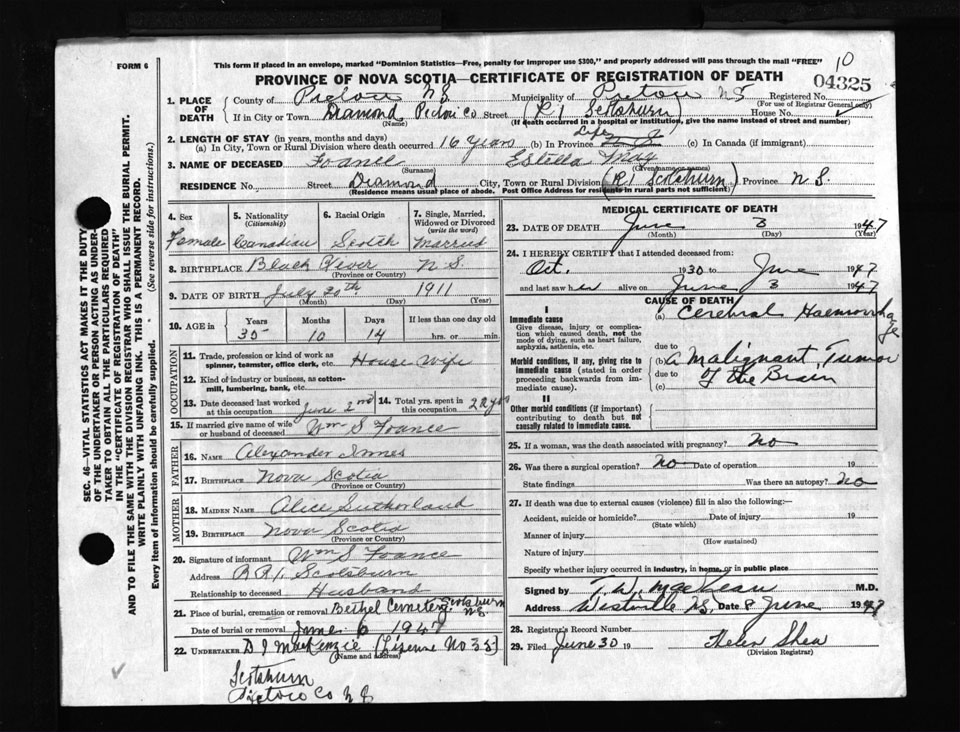 FORM 6
This form if placed in an envelope, marked "Dominion Statistics—Free, penalty for improper use $300," and properly addressed will pass through the mail "FREE"
10
PROVINCE OF NOVA SCOTIA—CERTIFICATE OF REGISTRATION OF DEATH
04325
1. PLACE OF DEATH
County of Pictou N S Municipality of Pictou N S Registered No.
(For use of Registrar General only)
If in City or Town Diamond Pictou Co Street (R 1 Scotsburn) House No.
(Name) (If death occurred in a hospital or institution, give the name instead of street and number)
2. LENGTH OF STAY (in years, months and days)
(a) In City, Town or Rural Division where death occurred 16 years (b) In Province Life (c) In Canada (if immigrant)
3. NAME OF DECEASED Foance Estella May
(Surname) (Given name or names)
RESIDENCE No. Street Diamond City, Town or Rural Division (R 1 Scotsburn) Province N S.
(Residence means usual place of abode. Post Office Address for residents in rural parts not sufficient)
4. Sex
Female
5. Nationality
(Citizenship)
Canadian
6. Racial Origin
Scotch
7. Single, Married, Widowed or Divorced
(write the word)
Married
8. BIRTHPLACE Black River N S.
(Province or Country)
9. DATE OF BIRTH July 20th 1911
(Month) (Day) (Year)
10. AGE in
Years Months Days If less than one day old
35 10 14 hrs. or min.
OCCUPATION
11. Trade, profession or kind of work as spinner, teamster, office clerk, etc. House Wife
12. Kind of industry or business, as cotton-mill, lumbering, bank, etc.
13. Date deceased last worked at this occupation June 2nd
14. Total yrs. spent in this occupation 22 yrs
15. If married give name of wife or husband of deceased Wm S Foance
FATHER
16. NAME Alexander Innes
17. BIRTHPLACE Nova Scotia
(Province or Country)
MOTHER
18. MAIDEN NAME Alice Sutherland
19. BIRTHPLACE Nova Scotia
(Province or Country)
20. Signature of informant Wm S Foance
Address R R 1. Scotsburn
Relationship to deceased Husband
21. Place of burial, cremation or removal Bethel Cemetery Scotsburn N S.
Date of burial or removal June 6 1947
22. UNDERTAKER D J MacKenzie (Lisenne No 35)
(Name and address)
Scotsburn
Pictou Co N S
MEDICAL CERTIFICATE OF DEATH
23. DATE OF DEATH June 3 1947
(Month) (Day)
24. I HEREBY CERTIFY that I attended deceased from:
Oct. 1930 to June 1947
and last saw her alive on June 3 1947
CAUSE OF DEATH
I
Immediate cause
Give disease, injury or complication which caused death, not the mode of dying, such as heart failure, asphyxia, asthenia, etc.
(a) Cerebral Haemorrhage
due to
Morbid conditions, if any, giving rise to immediate cause (stated in order proceeding backwards from immediate cause).
(b) a Malignant Tumor
due to of the Brain
(c)
II
Other morbid conditions (if important) contributing to death but not causally related to immediate cause.
25. If a woman, was the death associated with pregnancy? No
26. Was there a surgical operation? No Date of operation 19
State findings Was there an autopsy? No
27. If death was due to external causes (violence) fill in also the following:—
Accident, suicide or homicide? Date of injury 19
(State which)
Manner of injury
(How sustained)
Nature of injury
Specify whether injury occurred in industry, in home, or in public place
Signed by T W MacLean M.D.
Address Westville N S. Date 8 June 1947
28. Registrar's Record Number
29. Filed June 30 19 Helen Shea
(Division Registrar)
SEC. 46—VITAL STATISTICS ACT MAKES IT THE DUTY
OF THE UNDERTAKER OR PERSON ACTING AS UNDER-
TAKER TO OBTAIN ALL THE PARTICULARS REQUIRED
IN THE "CERTIFICATE OF REGISTRATION OF DEATH"
AND TO FILE THE SAME WITH THE DIVISION REGISTRAR WHO SHALL ISSUE THE BURIAL PERMIT.
WRITE PLAINLY WITH UNFADING INK. THIS IS A PERMANENT RECORD.
Every item of information should be carefully supplied. (See reverse side for instructions.)